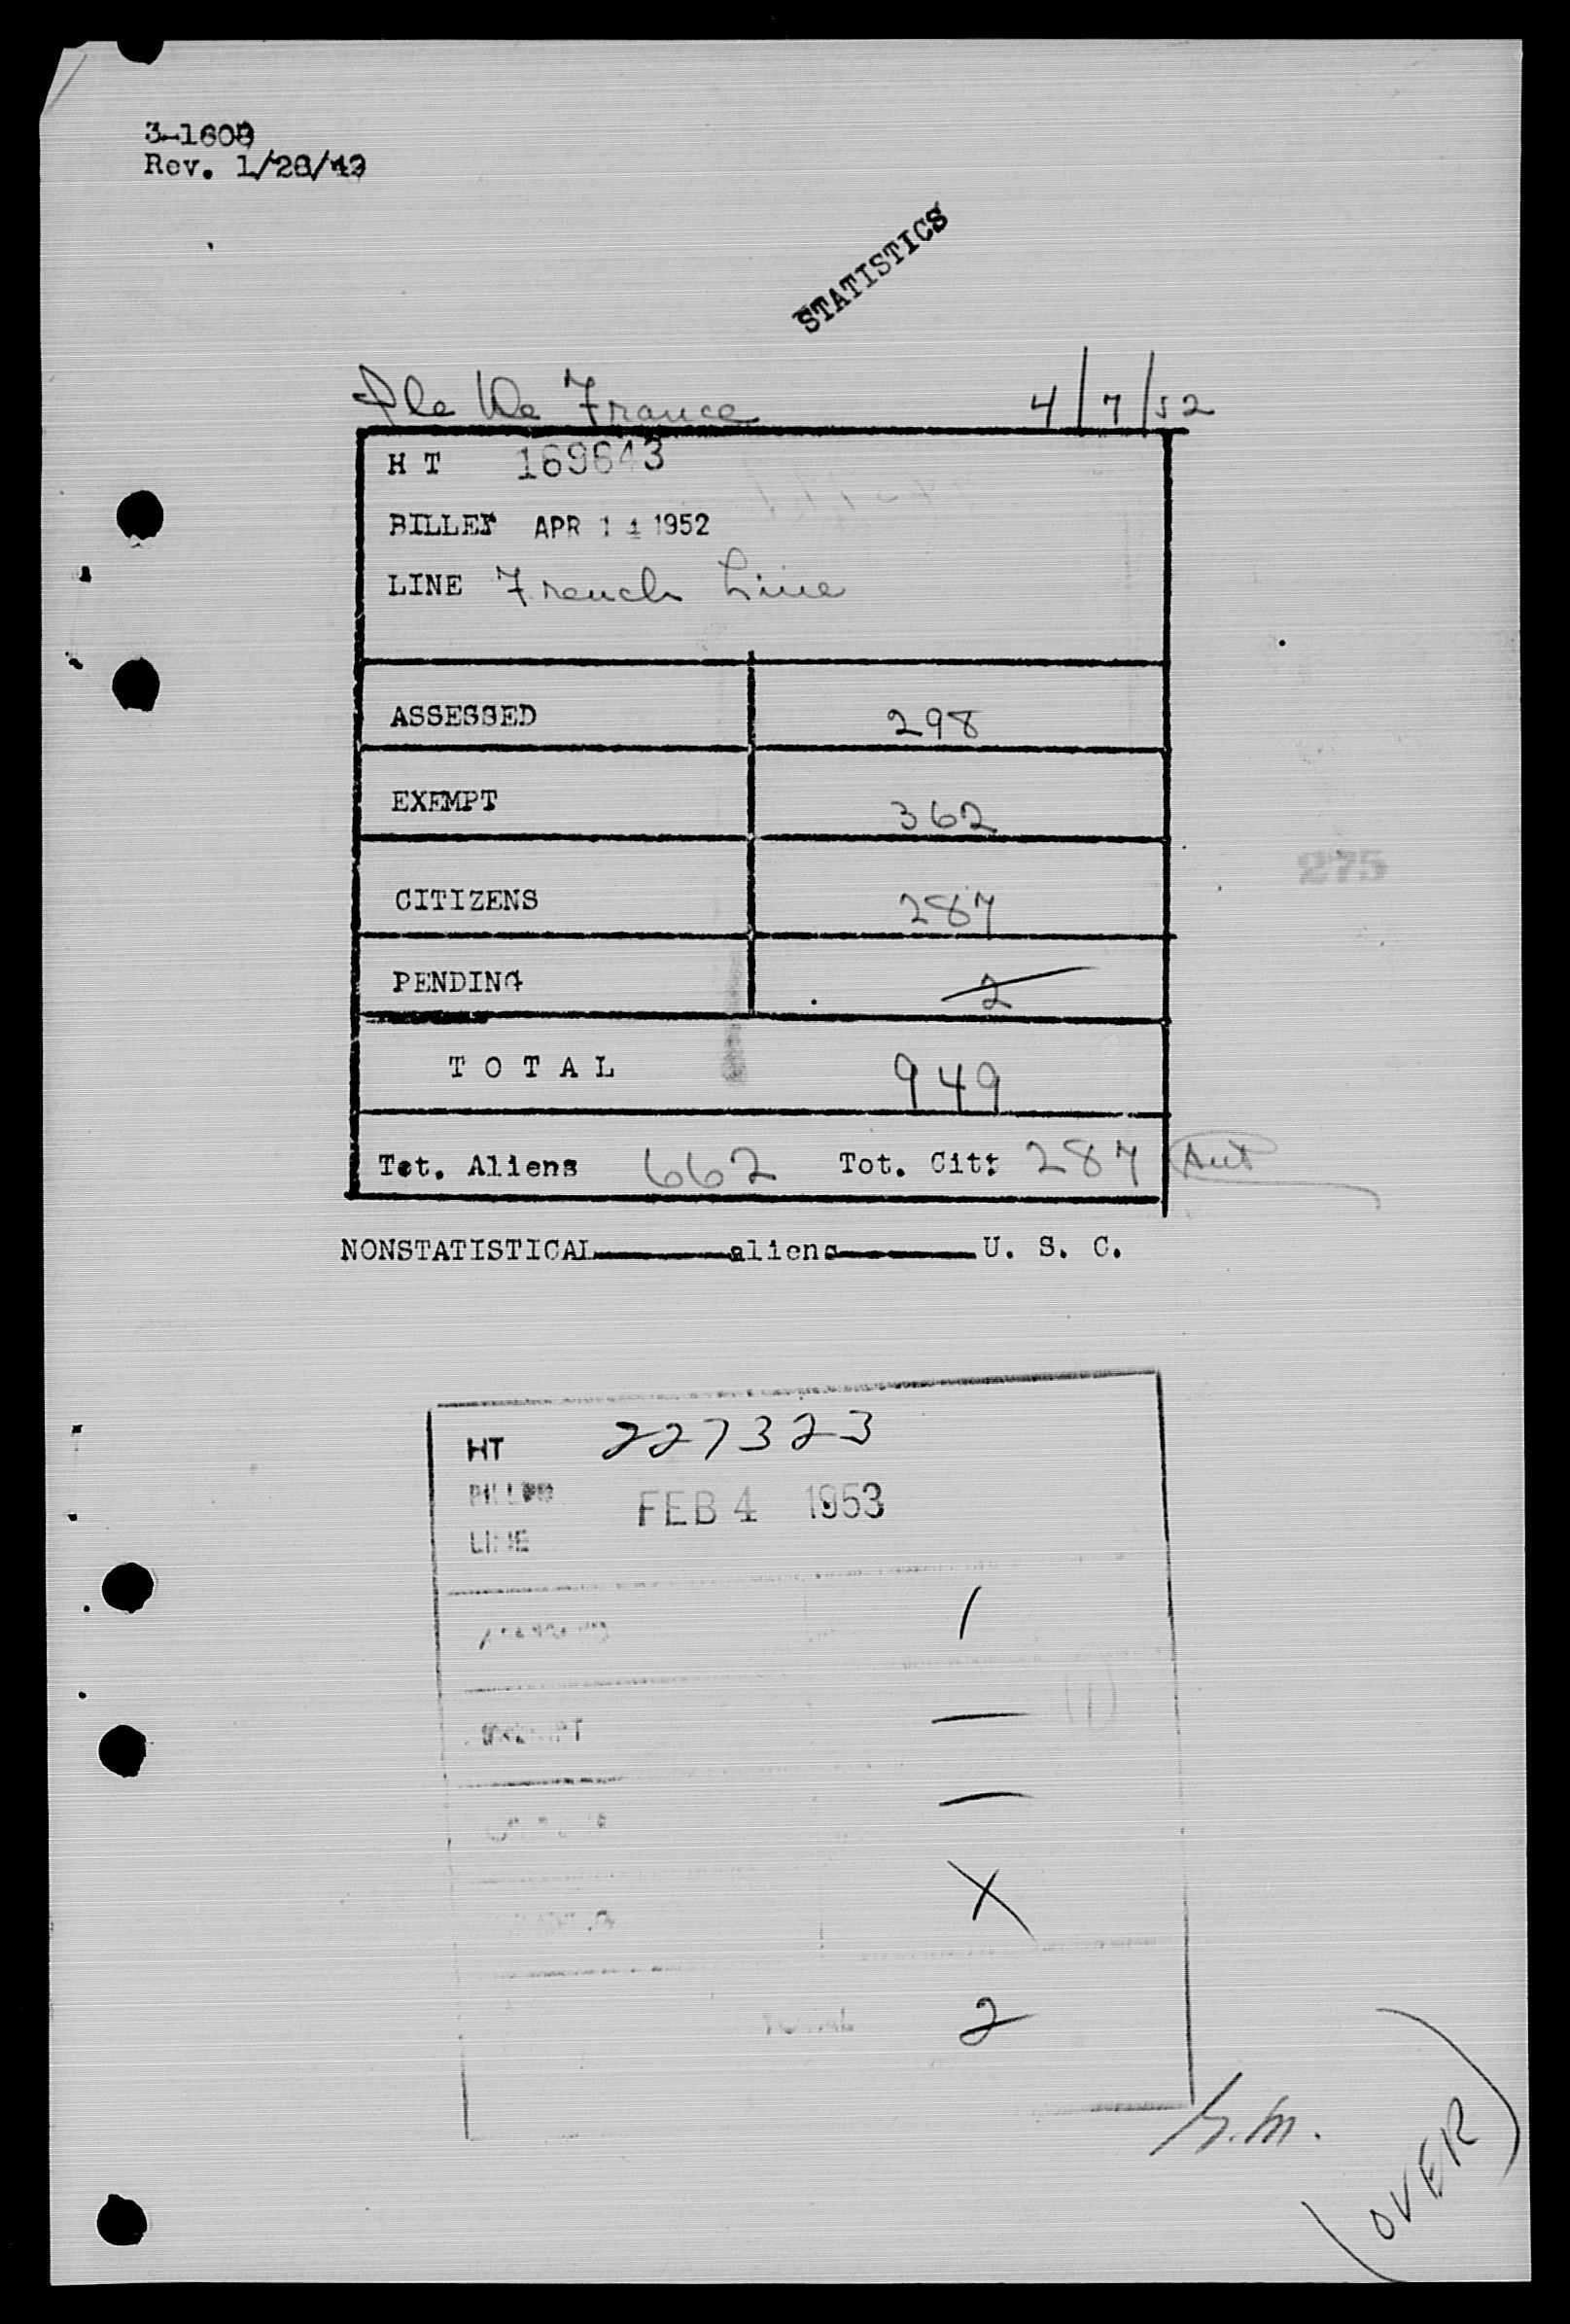 3-1608
Rev. 1/28/49
STATISTICS
Ile De France 4/7/52
H T 169643
BILLED APR 14 1952
LINE French Line
ASSESSED 298
EXEMPT 362
CITIZENS 287
PENDING 2
T O T A L 949
Tot. Aliens 662 Tot. Cit: 287
275
NONSTATISTICAL aliens U. S. C.
HT 227323
BILLED FEB 4 1953
LINE
1
EXEMPT —
—
X
TOTAL 2
(OVER)